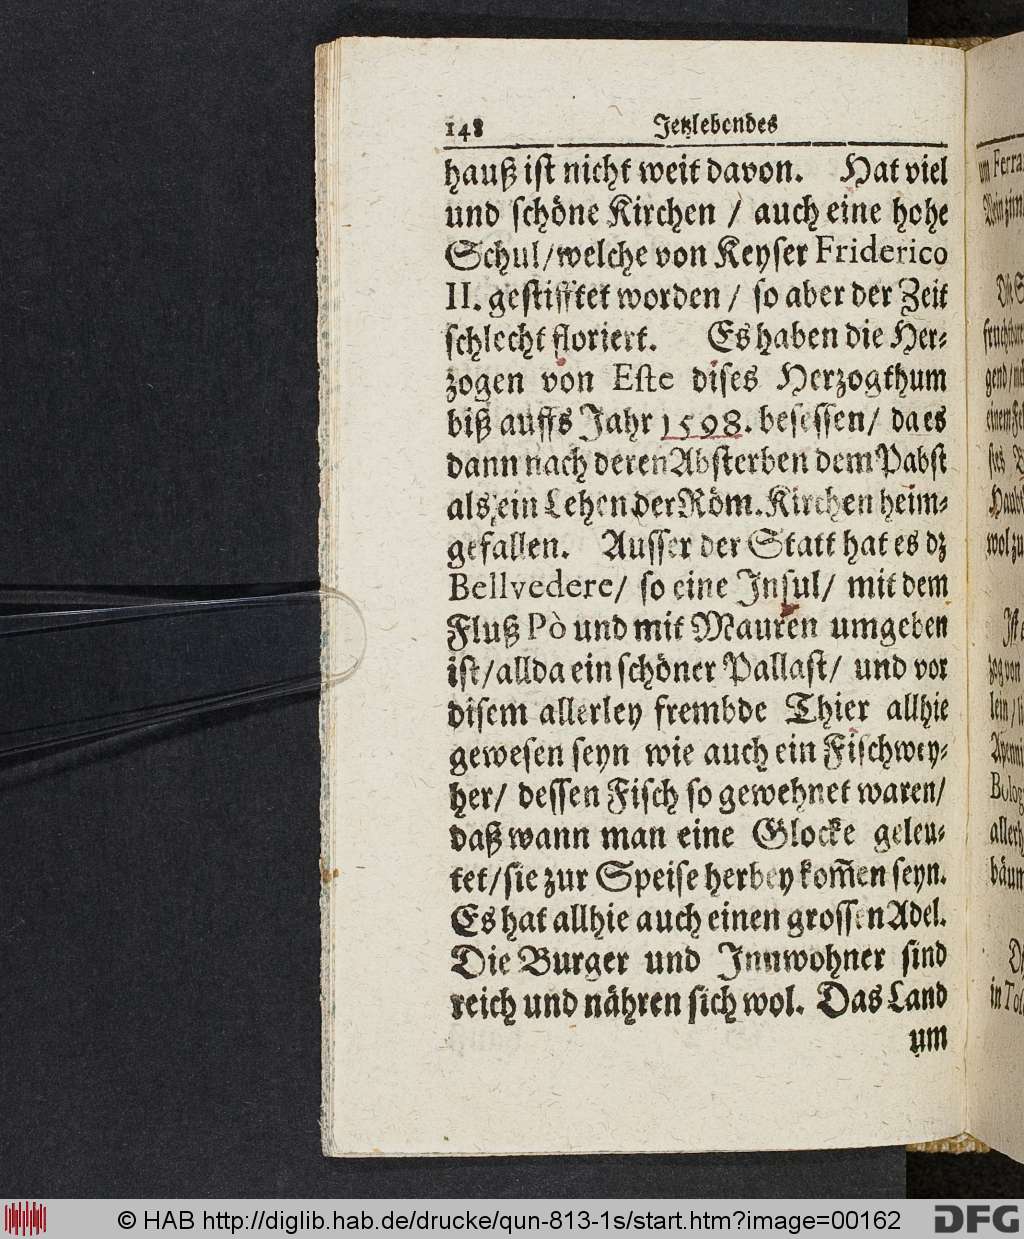 148 Jetzlebendes
hauß ist nicht weit davon. Hat viel
und schöne Kirchen / auch eine hohe
Schul/welche von Keyser Friderico
II. gestifftet worden / so aber der Zeit
schlecht floriert. Es haben die Her-
zogen von Este dises Herzogthum
biß auffs Jahr 1598. besessen/ da es
dann nach deren Absterben dem Pabst
als ein Lehen der Röm. Kirchen heim-
gefallen. Ausser der Statt hat es dz
Bellvedere/ so eine Insul/ mit dem
Fluß Pò und mit Mauren umgeben
ist/allda ein schöner Pallast/ und vor
disem allerley frembde Thier allhie
gewesen seyn wie auch ein Fischwey-
her/ dessen Fisch so gewehnet waren/
daß wann man eine Glocke geleu-
tet/sie zur Speise herbey kom̃en seyn.
Es hat allhie auch einen grossen Adel.
Die Burger und Innwohner sind
reich und nähren sich wol. Das Land
um
um Ferra
gend
Bolog
© HAB http://diglib.hab.de/drucke/qun-813-1s/start.htm?image=00162
DFG